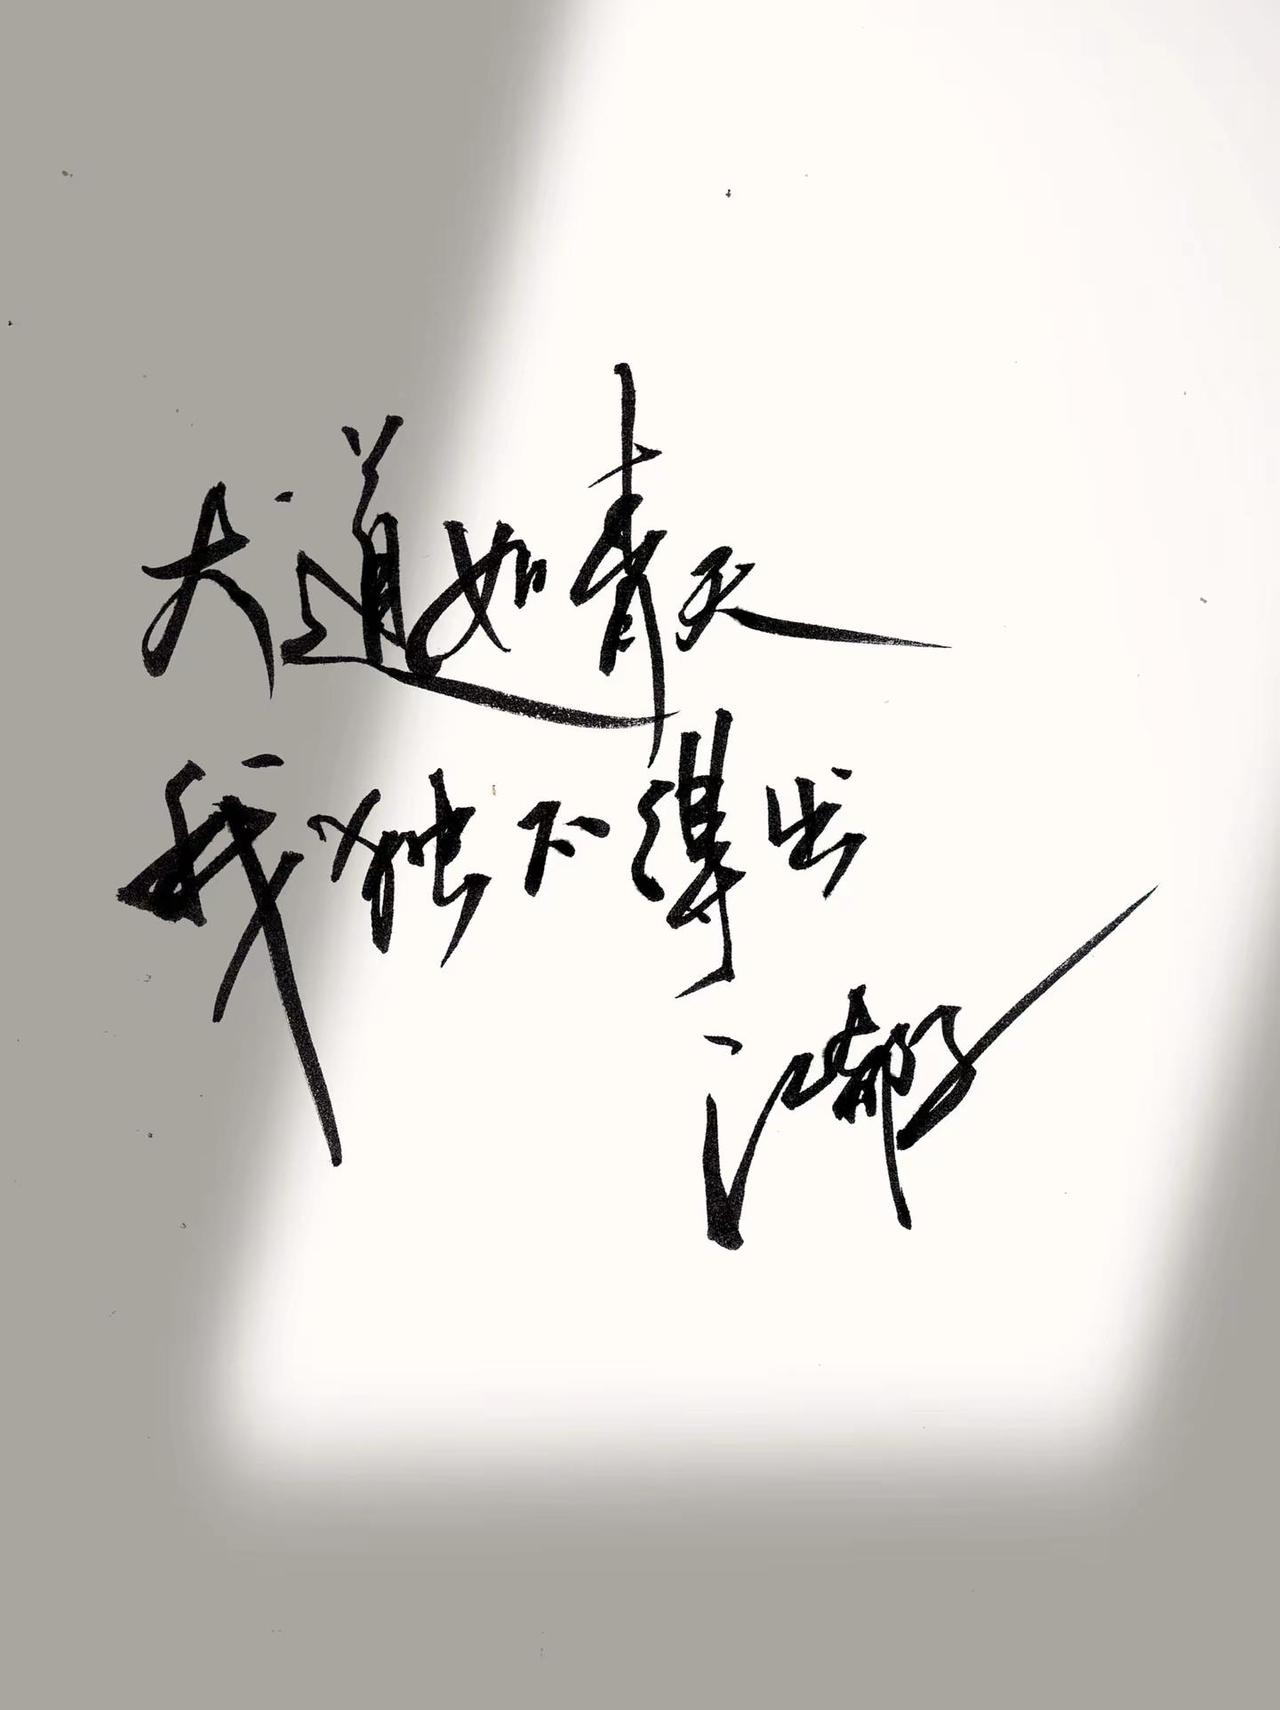 大道如青天
我独不得出
江郁子